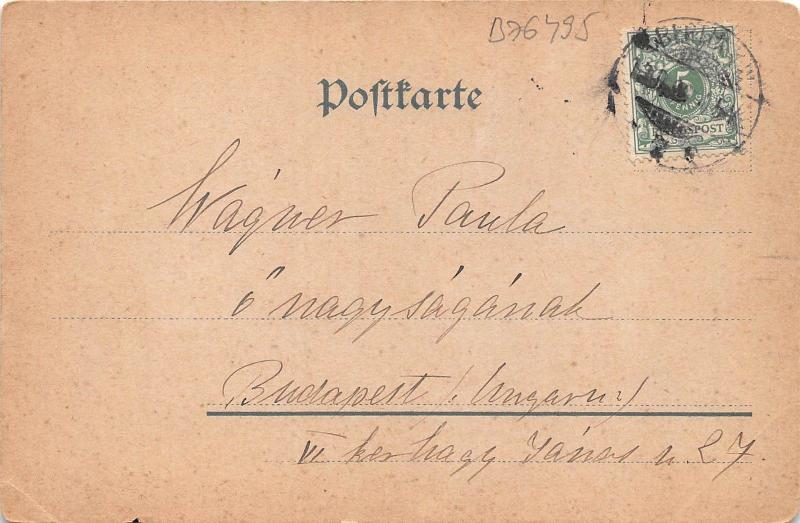 B76495
BERLIN
5
REICHSPOST
Postkarte
Wágner Paula
ő nagyságának
Budapest (: Ungarn :)
VI ker nagy János u. 27.